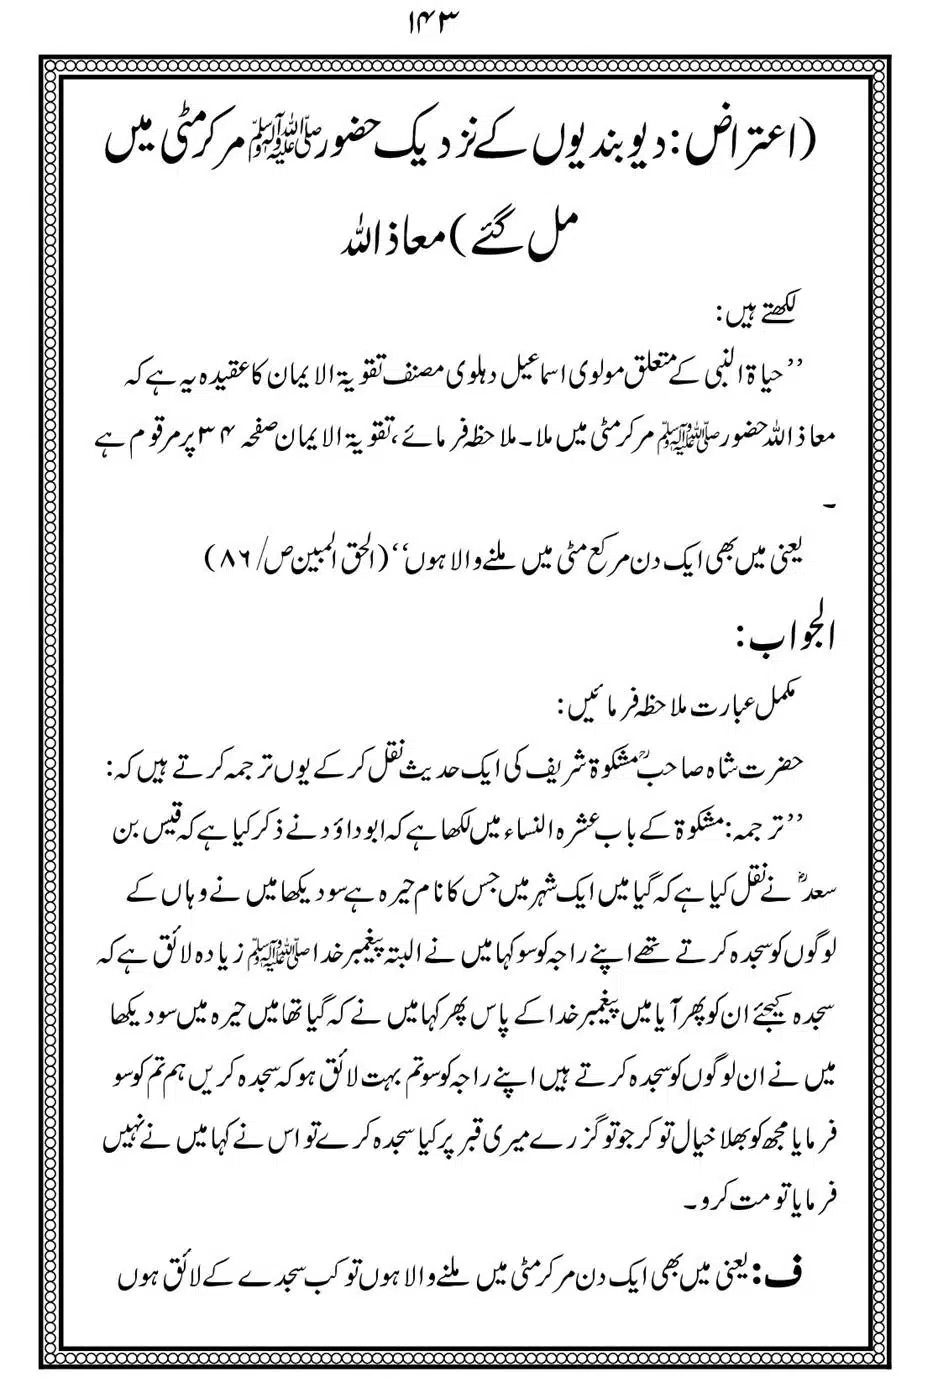 ۱۴۳
(اعتراض:دیوبندیوں کے نزدیک حضورﷺمرکرمٹی میں
مل گئے)معاذاللہ
لکھتے ہیں:
’’حیاۃ النبی کے متعلق مولوی اسماعیل دہلوی مصنف تقویۃ الایمان کا عقیدہ یہ ہے کہ
معاذاللہ حضورﷺمرکرمٹی میں ملا۔ملاحظہ فرمائے،تقویۃ الایمان صفحہ ۳۴ پر مرقوم ہے
۔
یعنی میں بھی ایک دن مرکے مٹی میں ملنے والا ہوں‘‘(الحق المبین ص/۸۶)
الجواب:
مکمل عبارت ملاحظہ فرمائیں:
حضرت شاہ صاحبؒ مشکوۃ شریف کی ایک حدیث نقل کرکے یوں ترجمہ کرتے ہیں کہ:
’’ترجمہ:مشکوۃ کے باب عشرہ النساء میں لکھا ہے کہ ابوداؤد نے ذکر کیا ہے کہ قیس بن
سعدؓ نے نقل کیا ہے کہ گیا میں ایک شہر میں جس کا نام حیرہ ہے سو دیکھا میں نے وہاں کے
لوگوں کو سجدہ کرتے تھے اپنے راجہ کو سو کہا میں نے البتہ پیغمبر خداﷺ زیادہ لائق ہے کہ
سجدہ کیجئے ان کو پھر آیا میں پیغمبر خدا کے پاس پھر کہا میں نے کہ گیا تھا میں حیرہ میں سو دیکھا
میں نے ان لوگوں کو سجدہ کرتے ہیں اپنے راجہ کو سو تم بہت لائق ہو کہ سجدہ کریں ہم تم کو سو
فرمایا مجھ کو بھلا خیال تو کر جو تو گزرے میری قبر پر کیا سجدہ کرے تو اس نے کہا میں نے نہیں
فرمایا تو مت کرو۔
ف:یعنی میں بھی ایک دن مرکر مٹی میں ملنے والا ہوں تو کب سجدے کے لائق ہوں